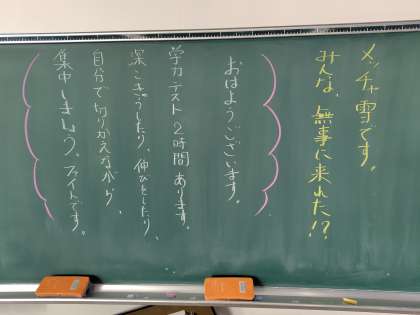 メッチャ雪です。
みんな、無事に来れた!?
おはようございます。
学力テスト2時間あります。
深こきゅうしたり、伸びをしたり、
自分で切りかえながら、
集中しましょう。ファイトです。